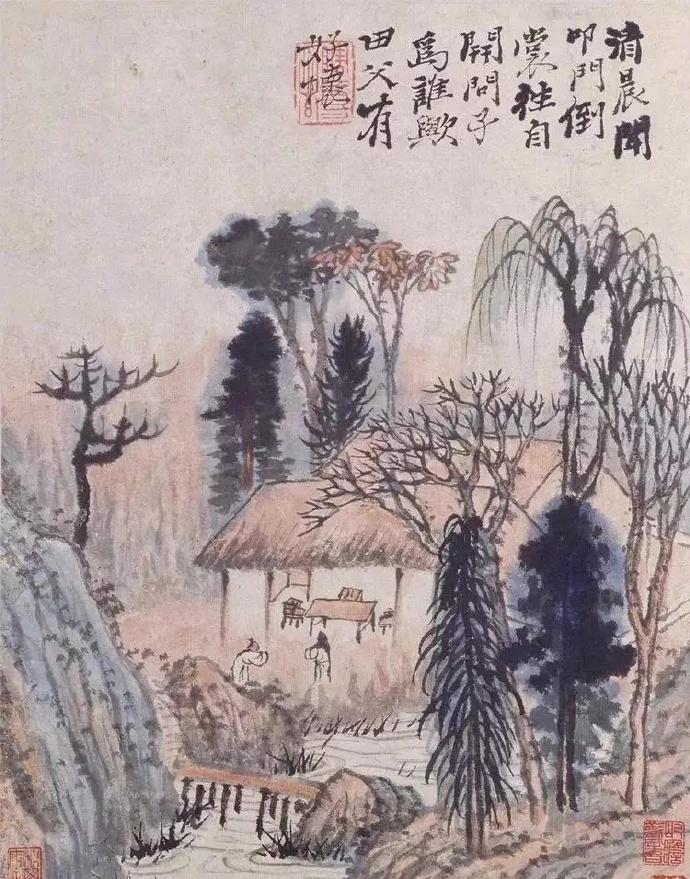 清晨聞
叩門倒
裳往自
開問子
爲誰歟
田父有
好懷